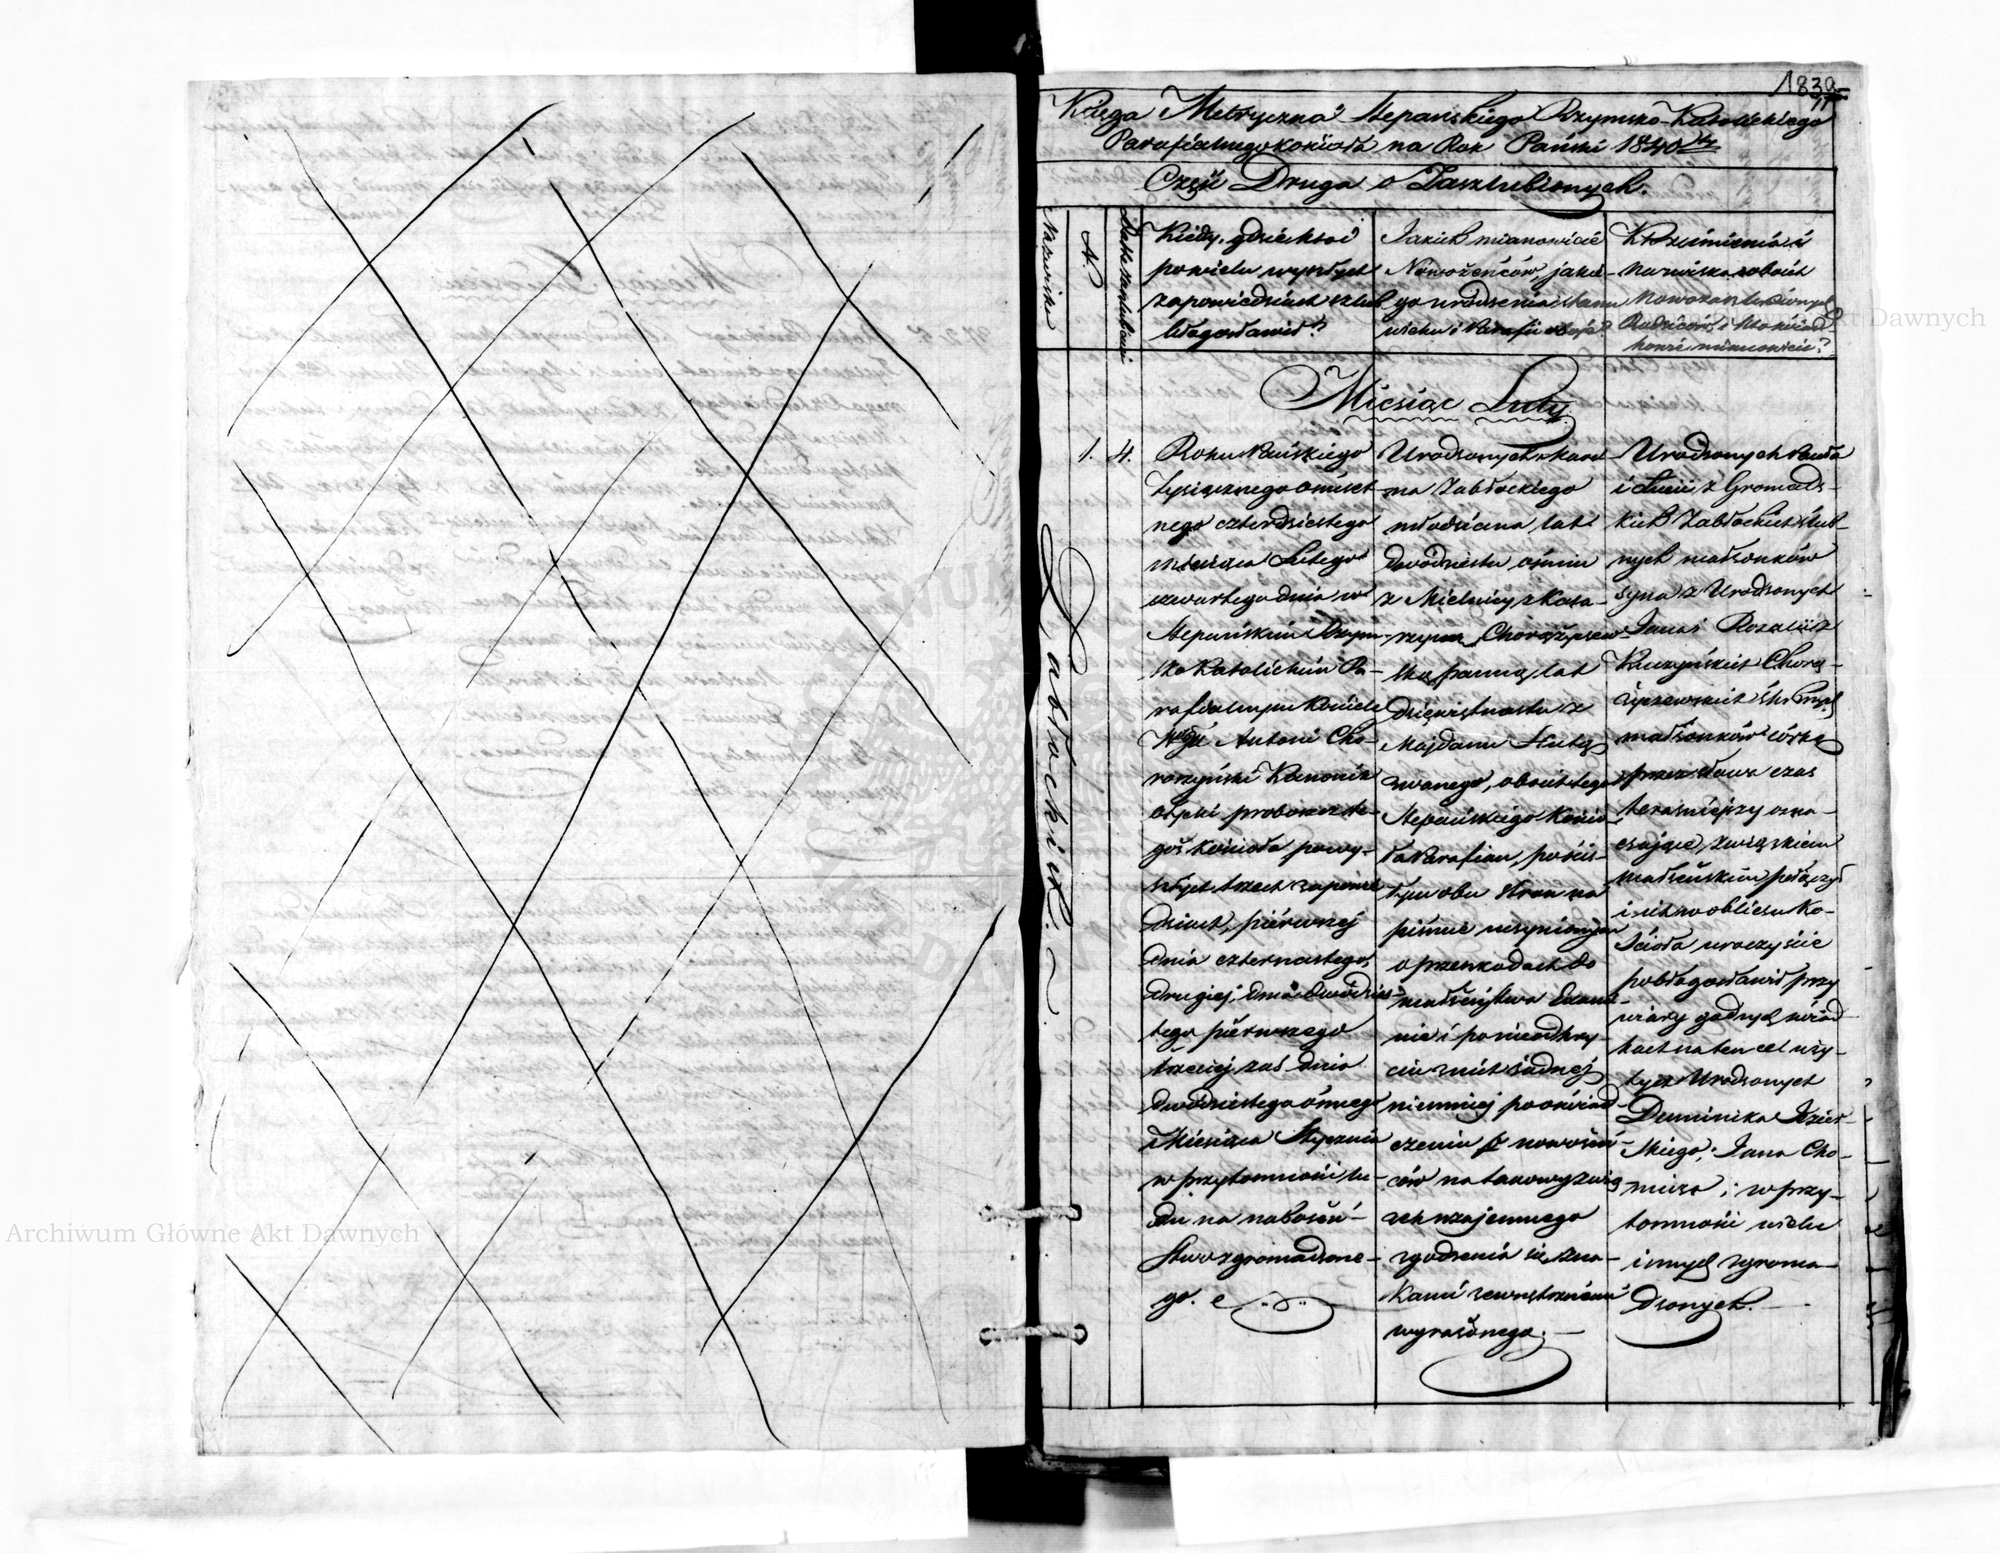 1839
11
Księga Metryczna Stepańskiego Rzymsko-Katolickiego
Parafialnego kościoła na Rok Pański 1840ty
Część Druga o Zaszlubionych.
Nazwisko
N.
Data zaszlubień
Kiedy, gdzie i ktoś
po wielu wyszłych
zapowiedziach szlub
błogosławił?
Jakich mianowicie
Nowożeńców, jakie-
go urodzenia stanu
wieku i Parafii oboje?
Kto z imienia i
nazwiska z obóch
Nowozaszlubionych
Rodziców i kto świad-
kowie mianowicie?
Miesiąc Luty.
Zabłockich.
1. 4.
Roku Pańskiego
tysiącznego ośmset-
nego czterdziestego
miesiąca Lutego
czwartego dnia w
Stepańskim Rzym-
sko Katolickim Pa-
rafialnym Kościele
Antoni Cho-
roszyński Kanonik
Ołycki proboszcz te-
goż kościoła po wy-
szłych trzech zapowie-
dziach, pierwszej
dnia czternastego,
drugiej dnia dwódzies-
tego pierwszego
trzeciej zaś dnia
dwódziestego ósmego
Miesiąca Stycznia
w przytomności lu-
du na nabożeń-
stwo zgromadzone-
go.
Urodzonych
Zabłockiego
młodziana lat
dwódziestu ośmiu
z Mielnicy z Kata-
rzyną Chorążyczew-
ską panną, lat
dziewiętnastu z
Majdanu Hutą
zwanego, oboich tego
Stepańskiego kościo-
ła Parafian, po ścis-
łym obu stron na
piśmie uczynionym
o przeszkodach do
małżeństwa Exami-
nie i po nieodkry-
ciu z nich żadnej
niemniej po oświad-
czeniu nowożeń-
ców na takowy zwią-
zek wzajemnego
zgodzenia się zna-
kami zewnętrznémi
wyrażonego.
Urodzonych Pawła
i Łucii z Gromadz-
kich Zabłockich szlub-
nych małżonków
syna z Urodzonych
Jana i Rozalii z
Kuczyńskich Chorą-
życzewskich
małżonków córką
przez słowa czas
teraźniejszy ozna-
czające, związkiem
małżeńskim połączył
i ich w obliczu Ko-
ścioła uroczyście
pobłogosławił przy
wiary godnych świad-
kach na ten cel uży-
tych Urodzonych
Dominika Jezier-
skiego, Jana Cho-
micza; i w przy-
tomności wielu
innych zgroma-
dzonych.
Archiwum Główne Akt Dawnych
Archiwum Główne Akt Dawnych